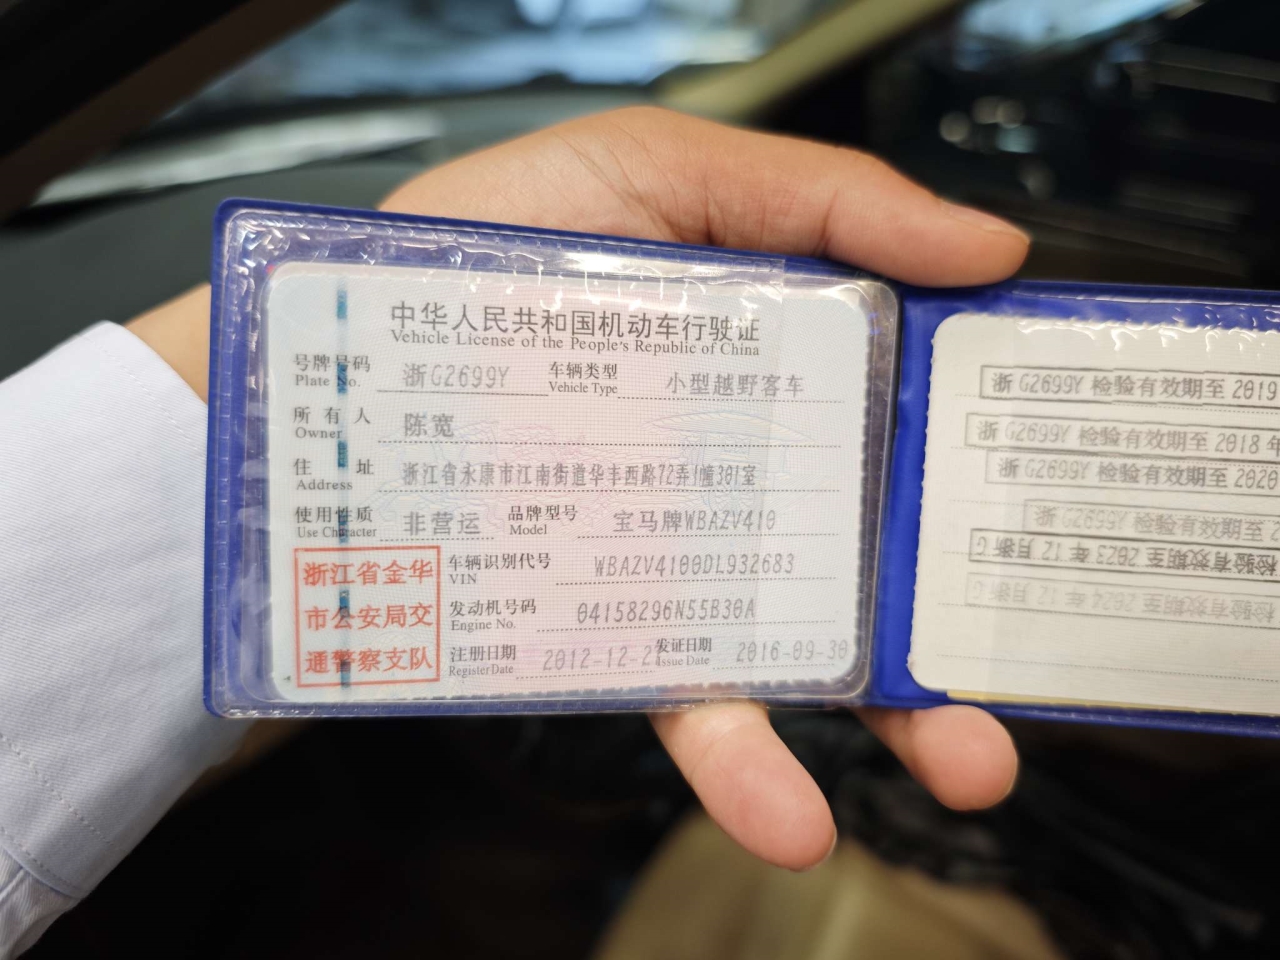 中华人民共和国机动车行驶证
Vehicle License of the People's Republic of China
号牌号码 浙G2699Y 车辆类型 小型越野客车
Plate No. Vehicle Type
所有人 陈宽
Owner
住址 浙江省永康市江南街道华丰西路72弄1幢301室
Address
使用性质 非营运 品牌型号 宝马牌WBAZV410
Use Character Model
浙江省金华
市公安局交
通警察支队
车辆识别代号 WBAZV4100DL932683
VIN
发动机号码 04158296N55B30A
Engine No.
注册日期 2012-12-2 发证日期 2016-09-30
Register Date Issue Date
浙G2699Y 检验有效期至 2019
浙G2699Y 检验有效期至 2018 年
浙G2699Y 检验有效期至 2020
浙G2699Y 检验有效期至 2
检验有效期至 2023 年 12 月浙G
检验有效期至 2024 年 12 月浙G